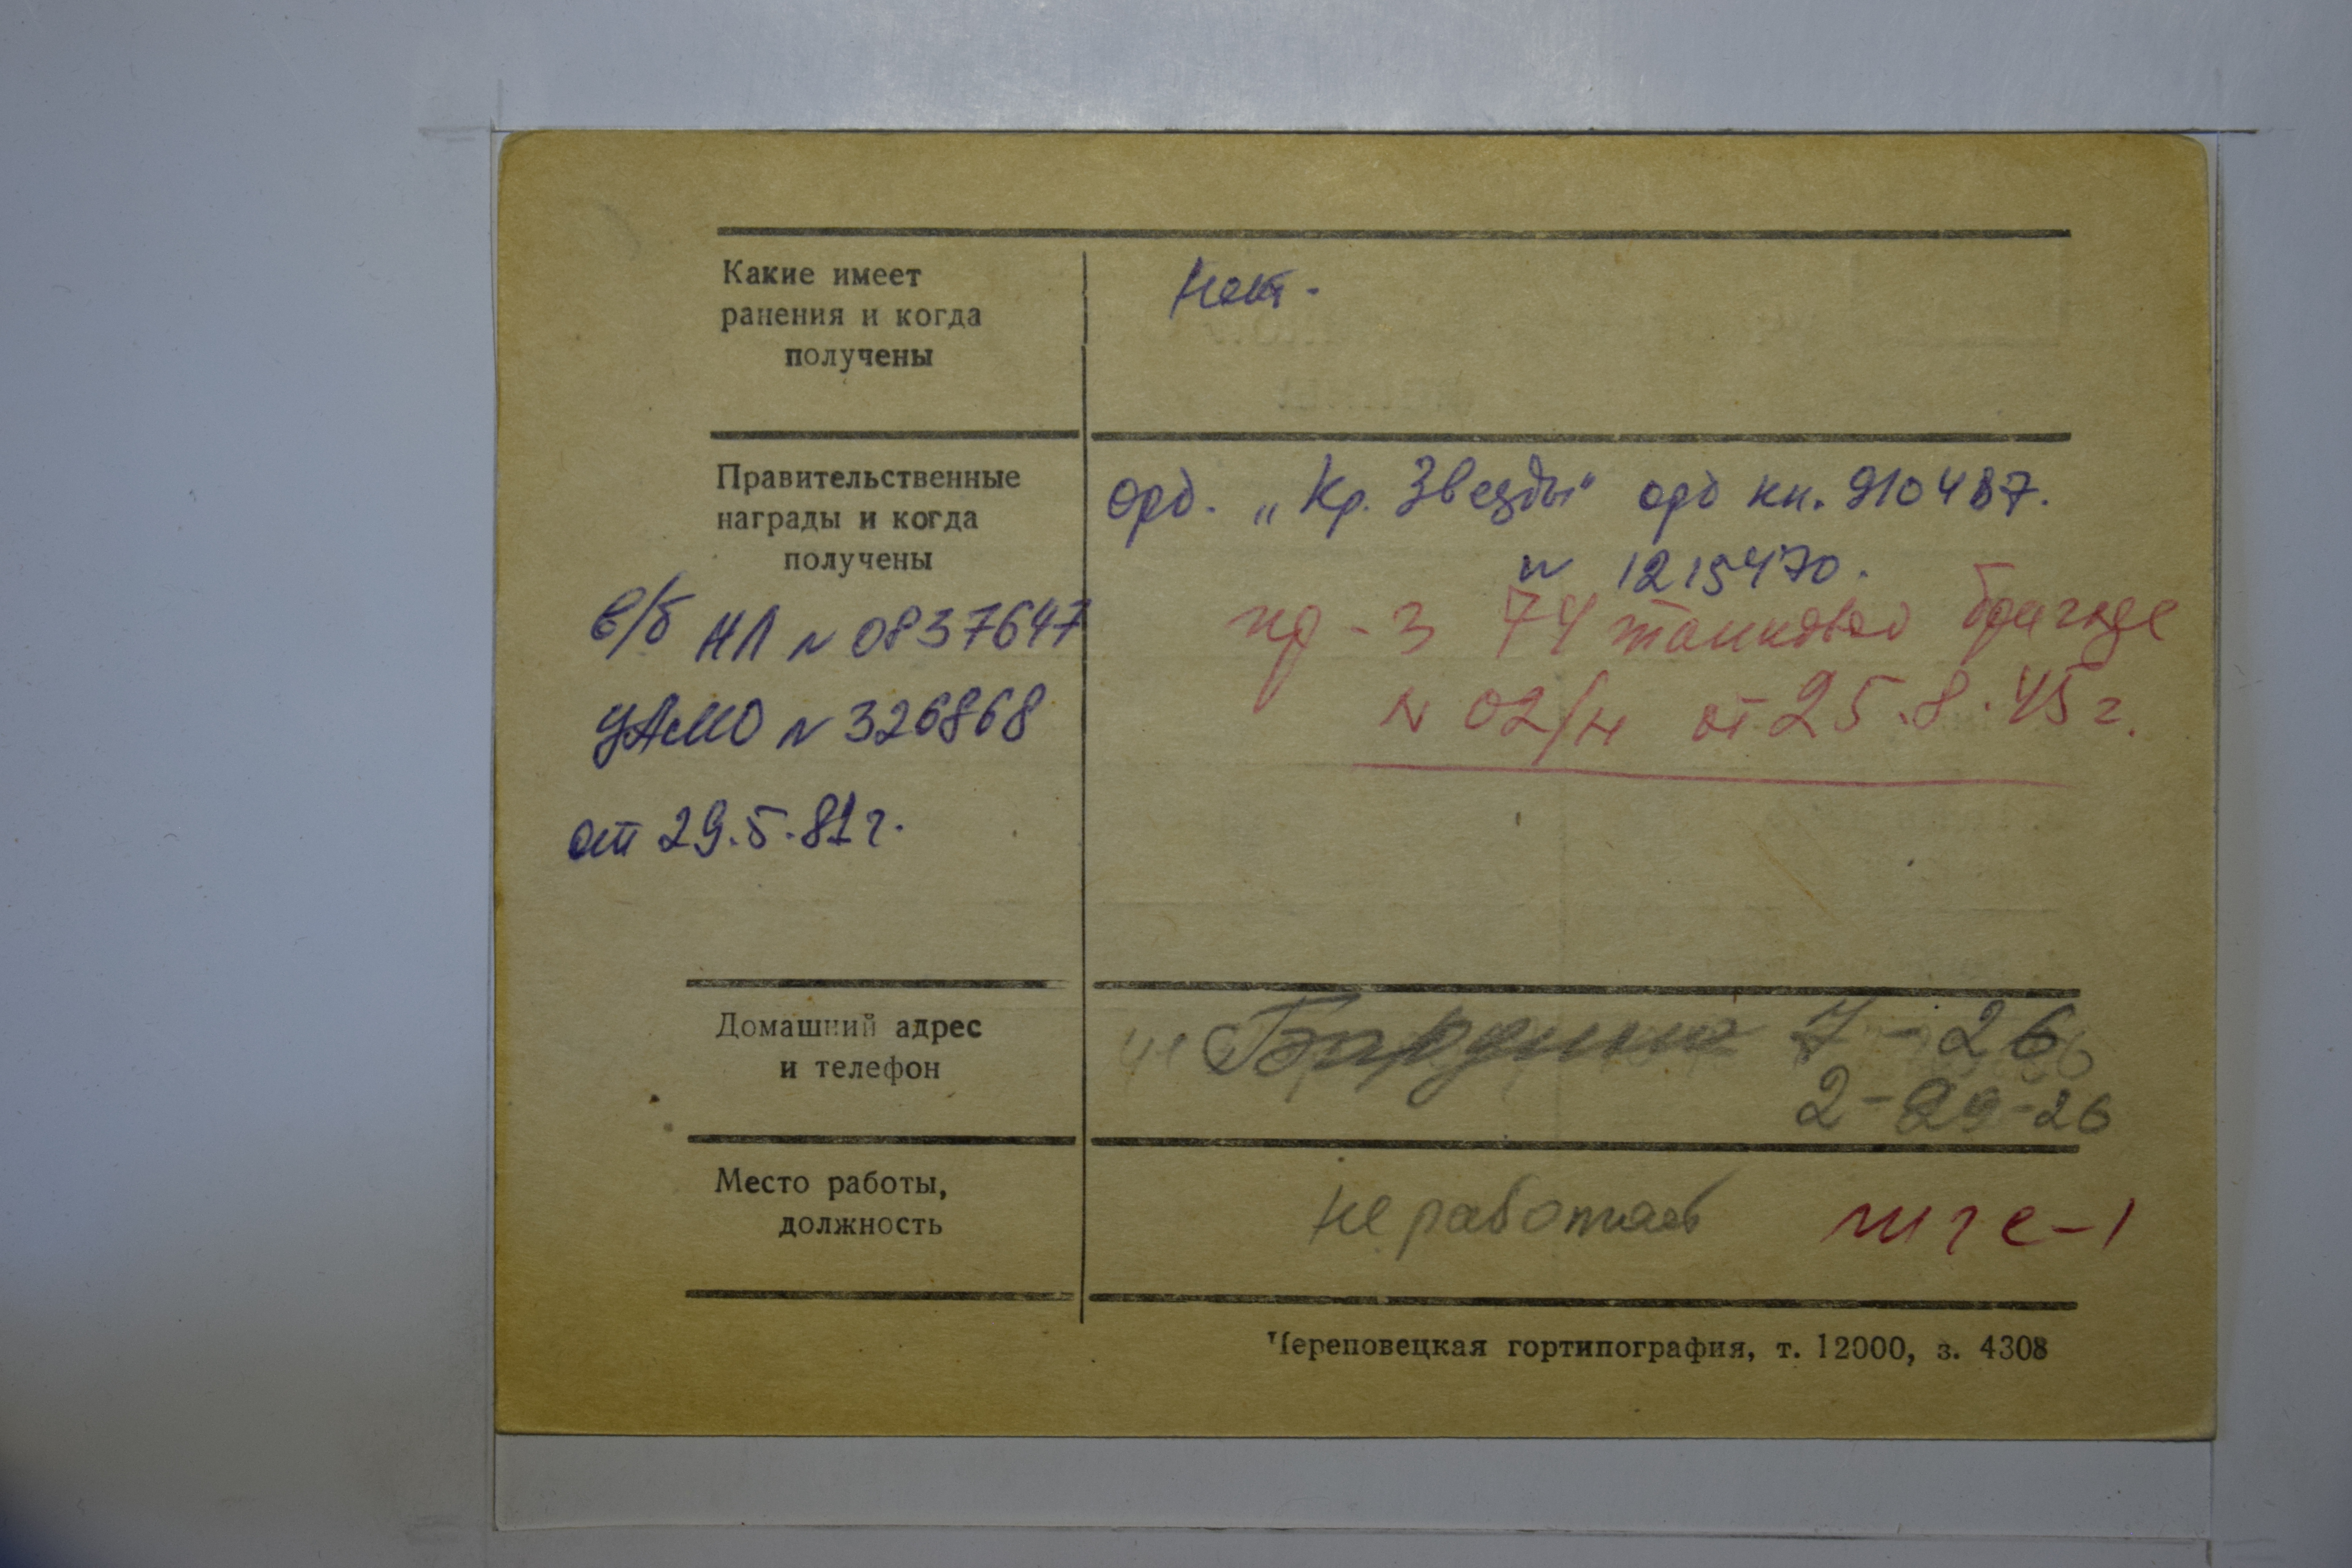 Какие имеет
ранения и когда
получены
Нет.
Правительственные
награды и когда
получены
орд. „Кр. Звезды" орд кн. 910487.
N 1215470.
в/б НЛ N 0837647
ЦАМО N 326868
от 29.5.81г.
пр-з 74 танковой бригаде
N 02/н от 25.8.45г.
Домашний адрес
и телефон
Бардина 7-26
2-29-26
Место работы,
должность
не работает
Череповецкая гортипография, т. 12000, з. 4308